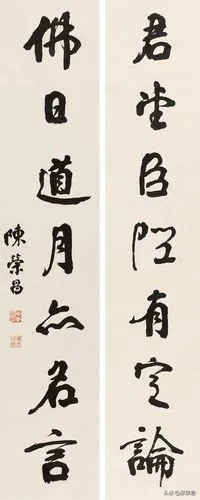 君堂臣陛有定論
佛日道月亦名言
陳榮昌